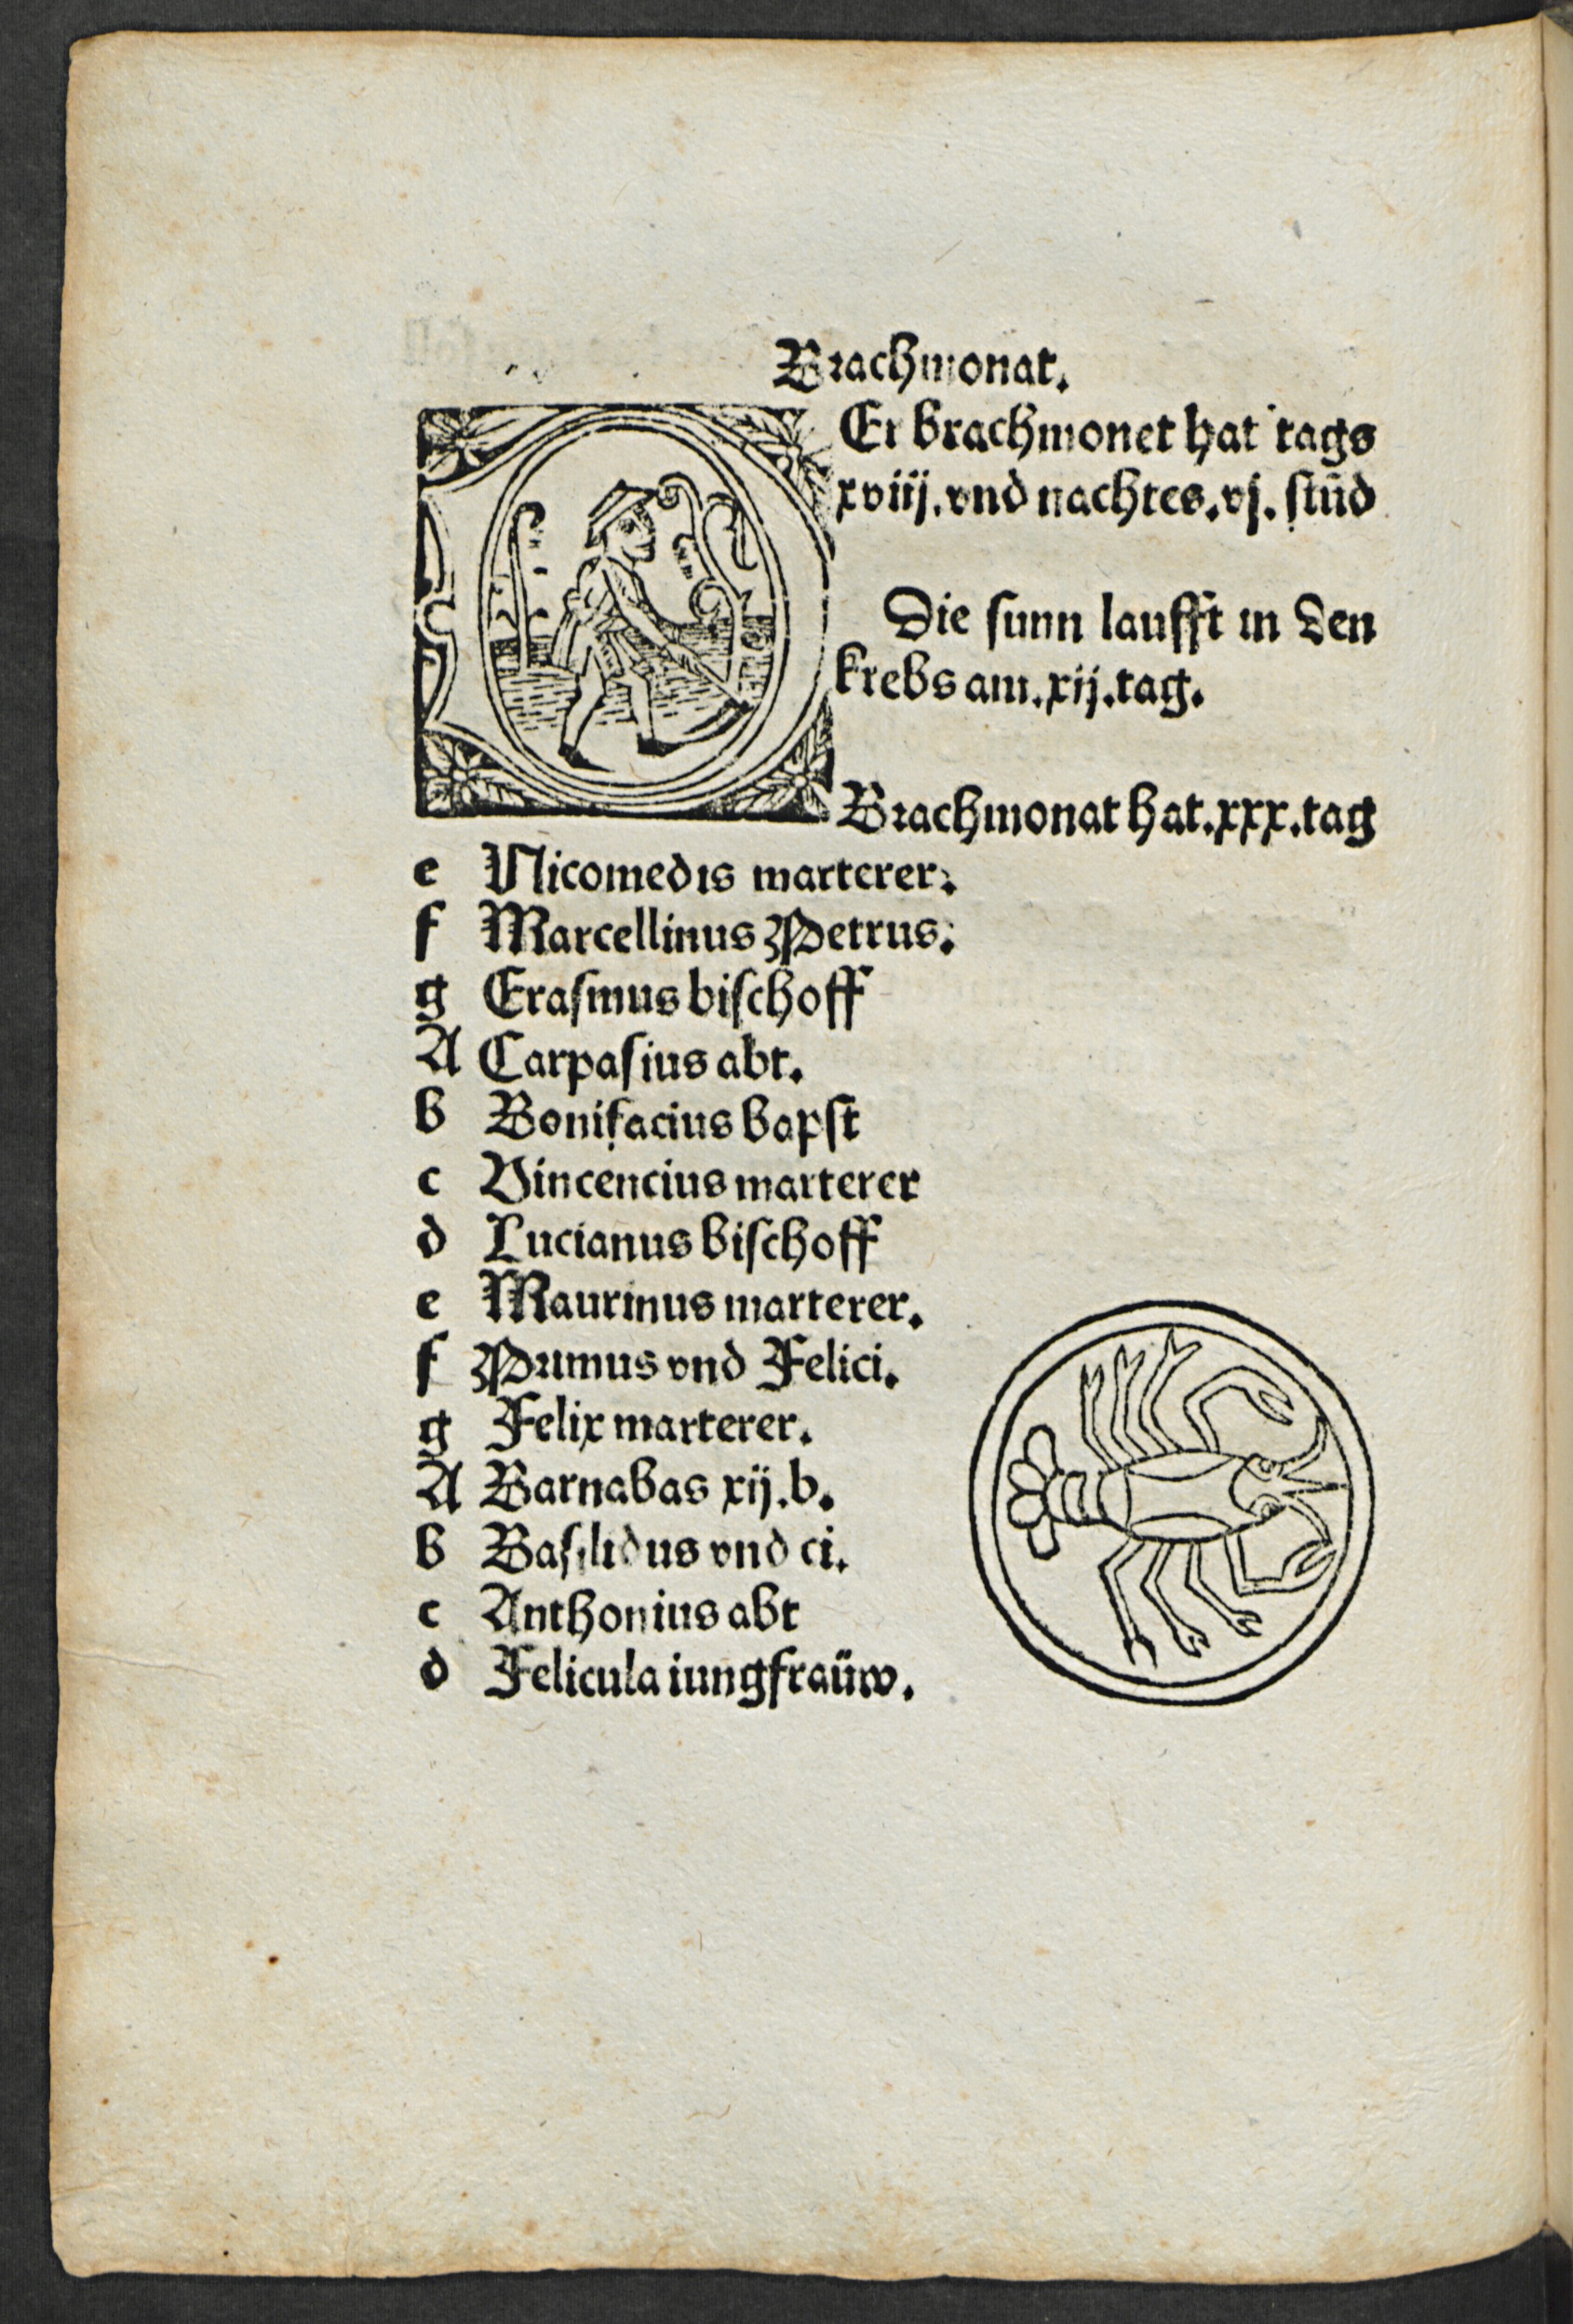 Brachmonat.
DEr brachmonet hat tags
xviij. vnd nachtes. vj. stūd
Die sunn laufft in den
krebs am. xij. tag.
Brachmonat hat. xxx. tag
e Nicomedis marterer.
f Marcellinus Petrus.
g Erasmus bischoff
A Carpasius abt.
b Bonifacius bapst
c Vincencius marterer
d Lucianus bischoff
e Maurinus marterer.
f Primus vnd Felici.
g Felix marterer.
A Barnabas xij. b.
b Basilidus vnd ci.
c Anthonius abt
d Felicula iungfraüw.